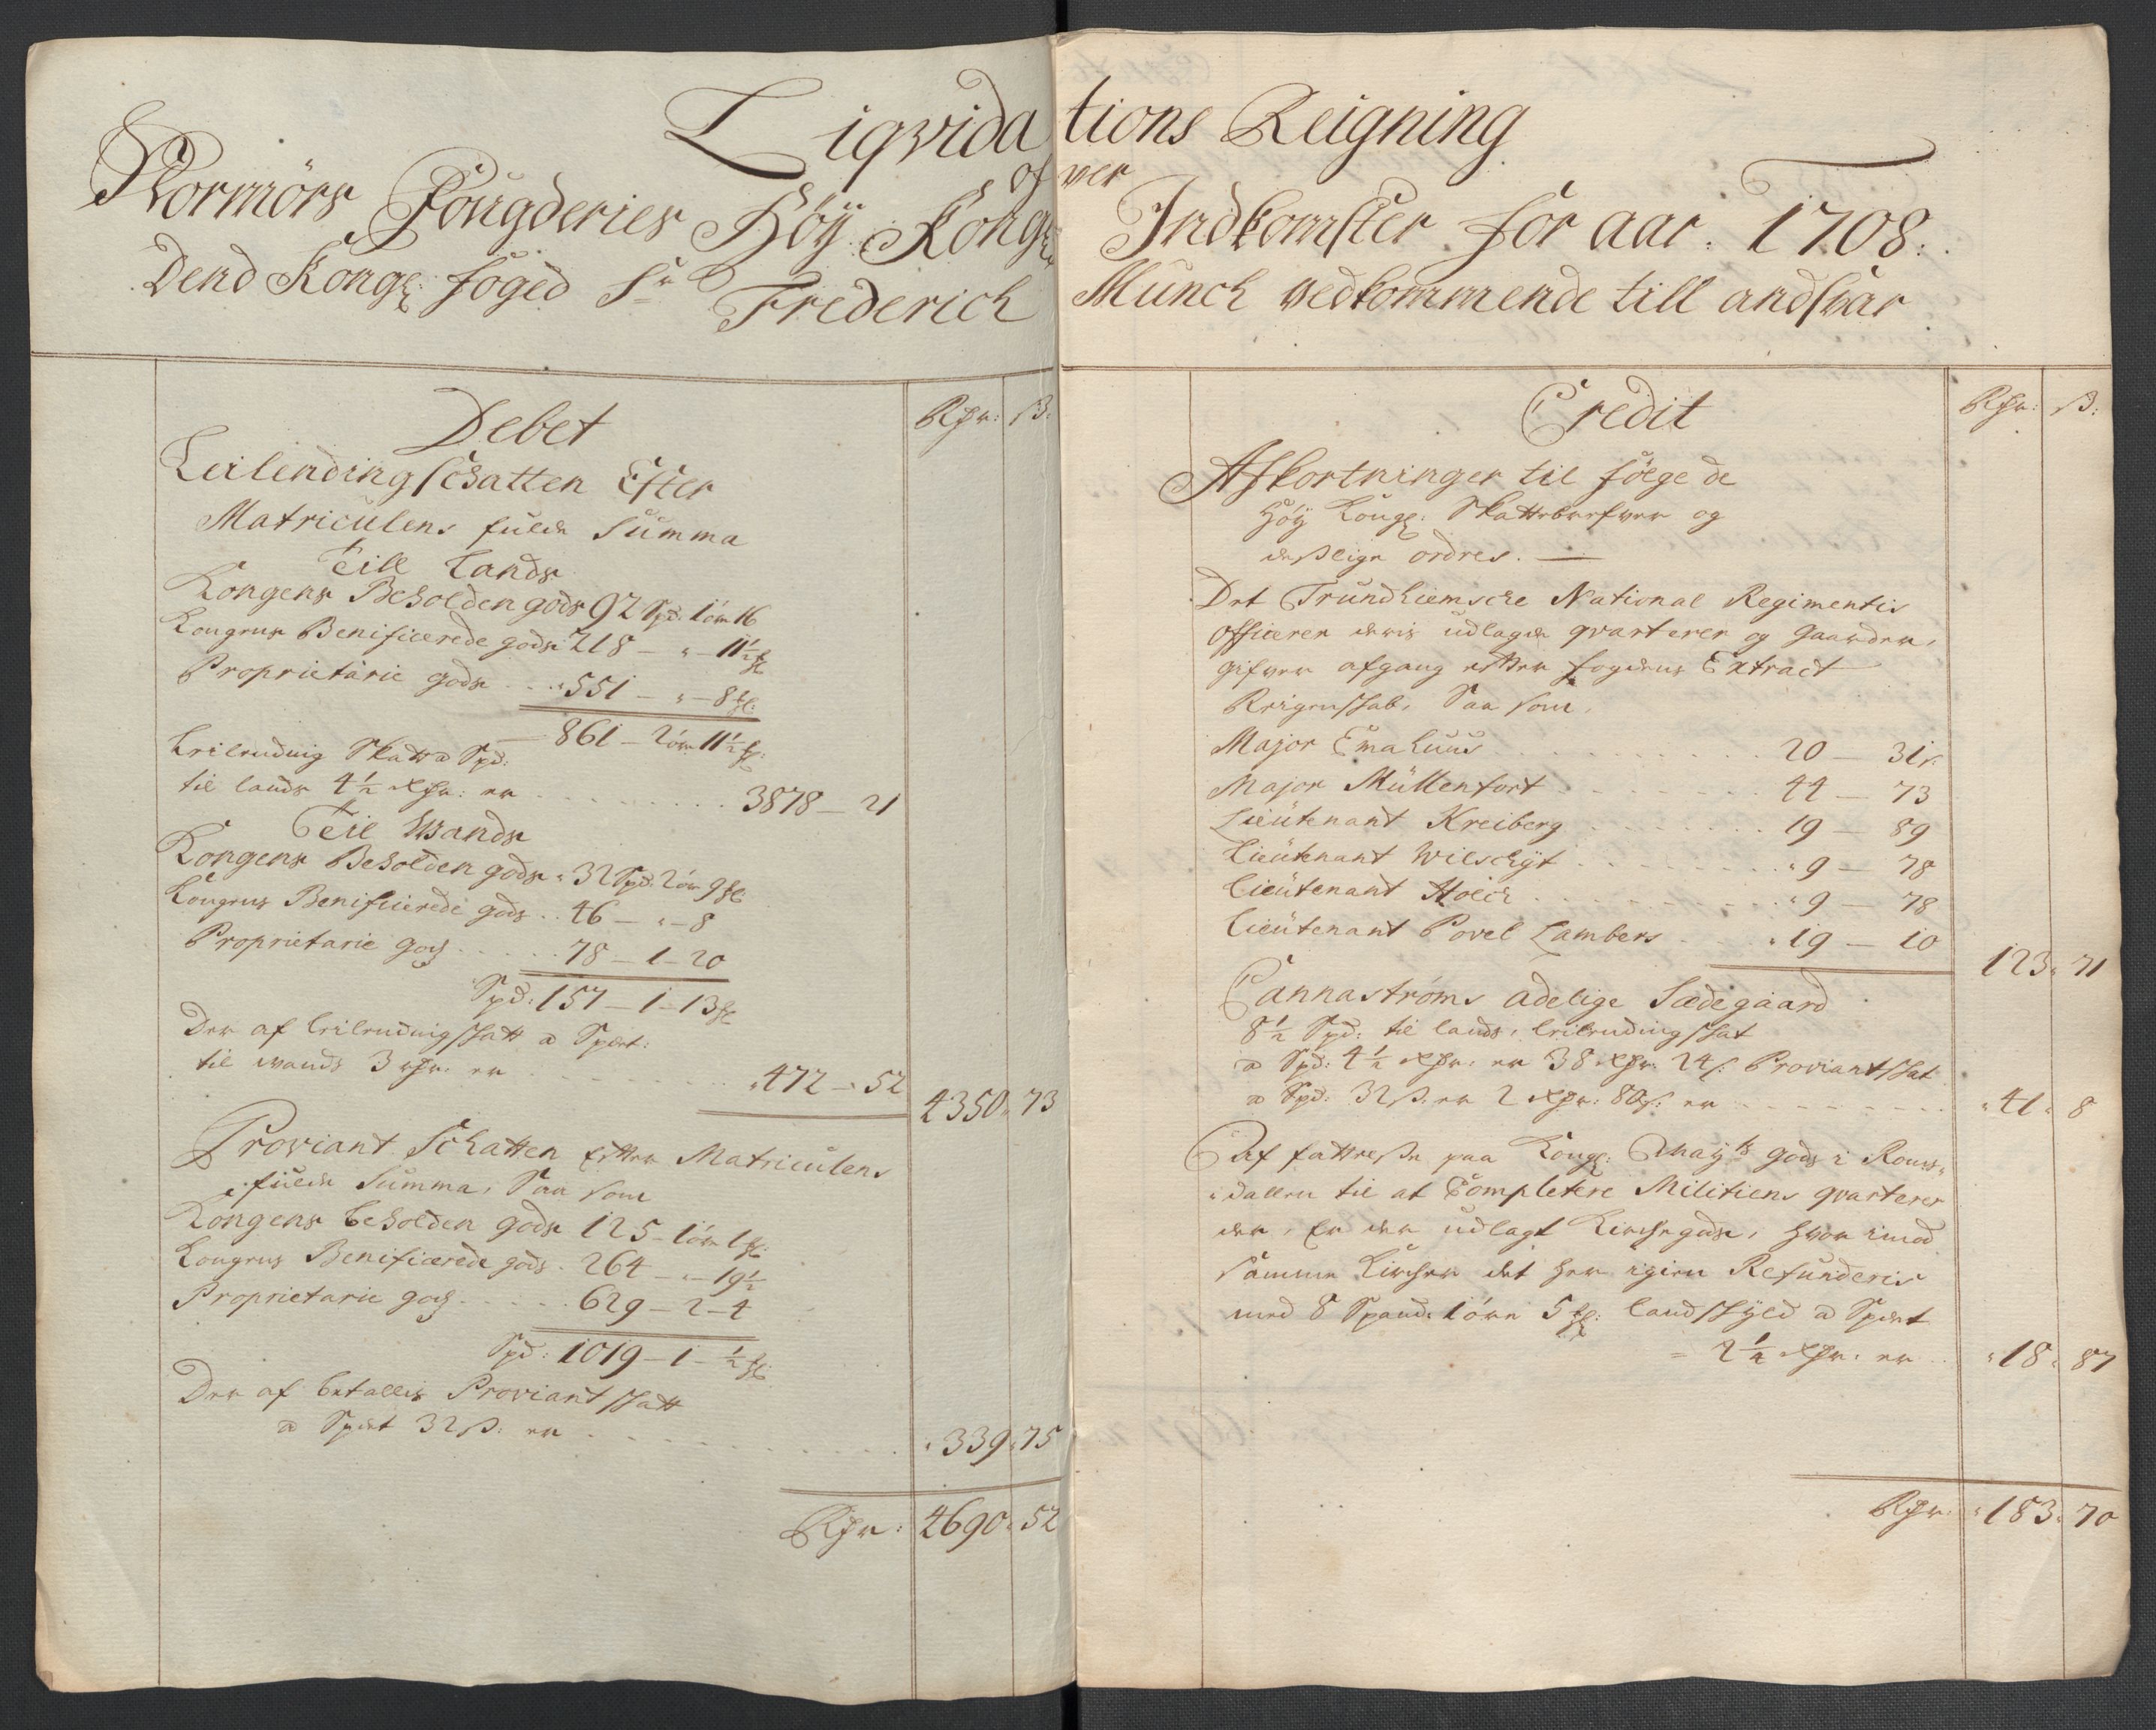 Liqvidations Reigning
ofver
Normörs Fougderies Höy Kongl: Indkomster for aar: 1708:
Dend Kongl: foged Sr Frederich Münch vedkommende till andsvar
Debet
Rdr: ß:
Leilending schatten Efter
Matriculens fulde Summa
Till Lands
Kongens Beholden gods 92 Spd: 1 ör 16
Kongens Benificerede gods 218 - " - 11½ ﬀ
Proprietarie gods . . . 551 - " - 8
861 - 2 ör 11½
Leilending Skatt a Spd:
til lands 4½ Rdr: er . . . 3878 - 21
Teil Wands
Kongens Beholden gods . 32 Spd: 2 ör 9
Kongens Benificerede gods . . 46 - " - 8
Proprietarie gods . . . 78 - 1 - 20
Spd: 157 - 1 - 13
Der af leilendingskatt a Spdt:
til wands 3 rdr: er . . . 472 - 52
4350 " 73
Proviant Schatten efter Matriculens
fulde Summa, Saa som
Kongens beholden gods 125 - 1 ör 1
Kongens Benificerede gods . 264 - " - 19½
Proprietarie gods . . . 629 - 2 - 4
Spd: 1019 - 1 - ½
Der af betallis Proviant skatt
a Spdt 32 ß: er . . . 339 " 75
Rdr: 4690 " 52
Credit
Rdr: ß:
Afkortninger til følge de
Höy Kongl: Skattebrefver og
desslige ordres. —
Det Trundhiemsche National Regimentis
officerer deris udlagde qvarterer og gaarder,
gifver afgang efter fogdens Extract
Reigenskab, Saa som
Major Emahuus . . . 20 - 31
Major Müllenfort . . . 44 - 73
Lieutenant Kreiberg . . . 19 - 89
Lieutenant Wilschyt . . . 9 - 78
Lieutenant Holch . . . 9 - 78
Lieutenant Povel Lambers . . . 19 - 10
123 " 71
Cannastrøms adelige Sædegaard
8½ Spd: til lands, leilendingskat
a Spd: 4½ rdr: er 38 rdr: 24 ß: Proviantskat
a Spd: 32 ß: er 2 rdr: 80 ß: er . . . 41 " 8
Af fattelse paa Kongl: Mayts gods i Roms-
dallen til at Completere Militiens qvarterer
der, Er der udlagt Kirchegods, hvor imod
samme Kircher det her igien Refunderis
med 8 Spand 1 øre 5 landskyld a Spdt
2¼ rdr: er . . 18 " 87
Rdr: 183 " 70